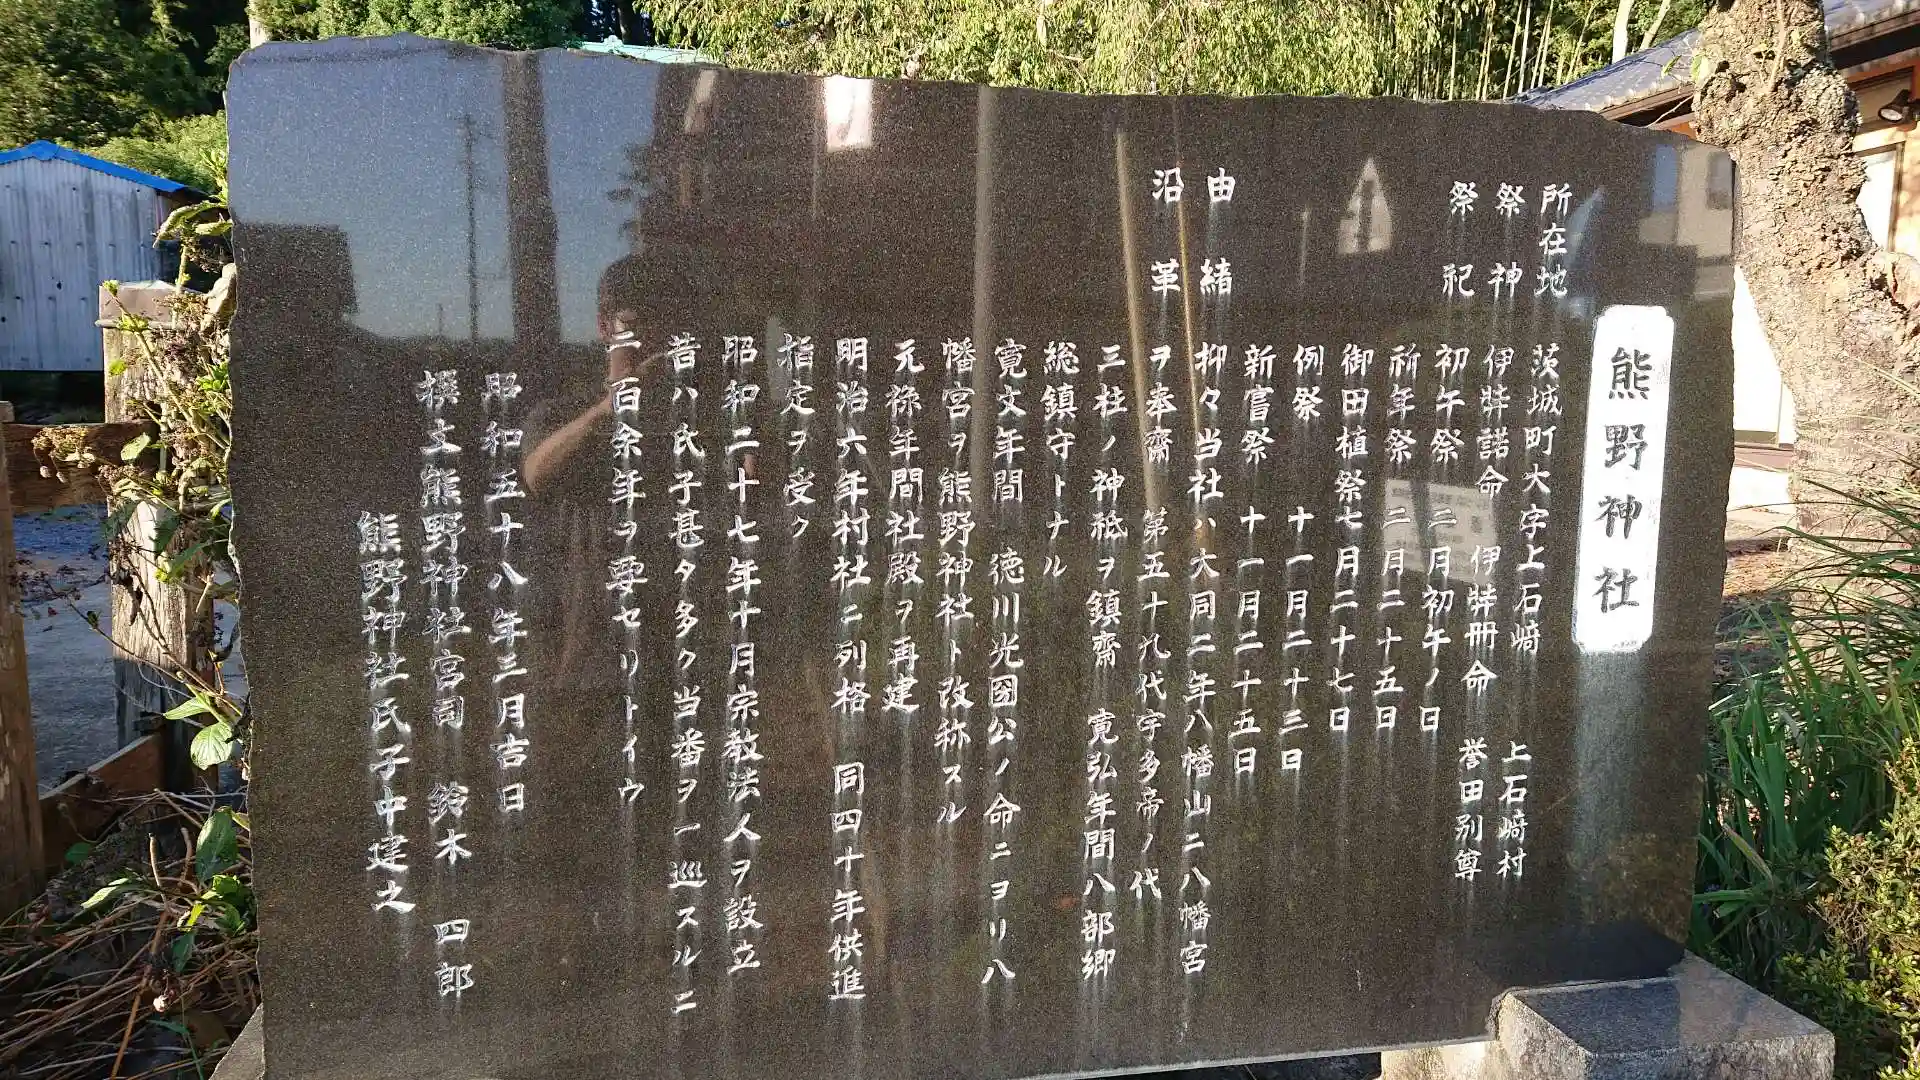 熊野神社
所在地 茨城町大字上石﨑 上石﨑村
祭神 伊弉諾命 伊弉冊命 誉田別尊
祭祀 初午祭 二月初午ノ日
祈年祭 二月二十五日
御田植祭 七月二十七日
例祭 十一月二十三日
新嘗祭 十一月二十五日
由緒 抑々当社ハ大同二年八幡山ニ八幡宮
沿革 ヲ奉齋 第五十九代宇多帝ノ代
三柱ノ神祗ヲ鎮齋 寛弘年間八部郷
総鎮守トナル
寛文年間 徳川光圀公ノ命ニヨリ八
幡宮ヲ熊野神社ト改称スル
元禄年間社殿ヲ再建
明治六年村社ニ列格 同四十年供進
指定ヲ受ク
昭和二十七年十月宗教法人ヲ設立
昔ハ氏子甚タ多ク当番ヲ一巡スルニ
二百余年ヲ要セリトイウ
昭和五十八年三月吉日
撰文熊野神社宮司 鈴木四郎
熊野神社氏子中建之